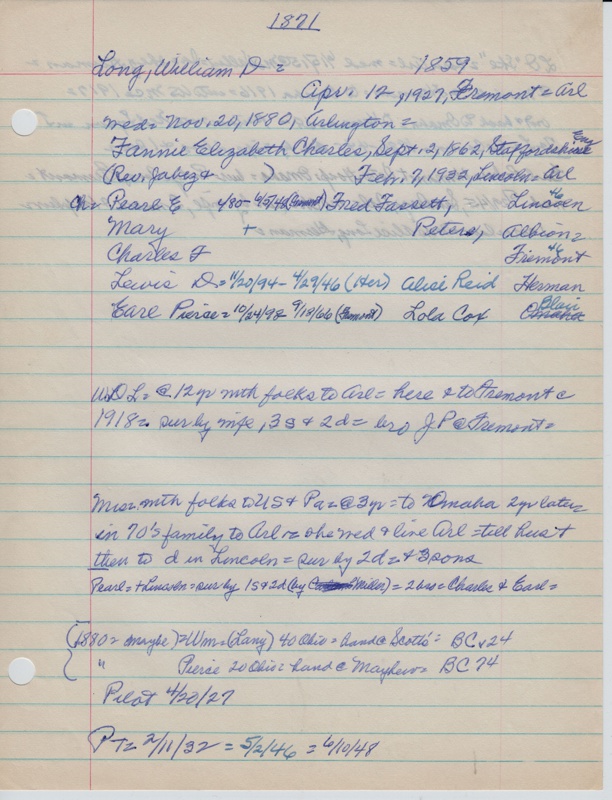 1871
Long, William D = 1859=
Apr. 12, 1927, Fremont = Arl
med= Nov. 20, 1880, Arlington =
Fannie Elizabeth Charles, Sept. 2, 1862, Staffordshire Eng
Rev. Jabez & ) Feb. 7, 1932, Lincoln = Arl
Ch = Pearl E 4/80 - 6/5/48 (Fremont) Fred Fassett, Lincoln 46
Mary + Peters, Albion =
Charles F Fremont 46
Lewis D. = 11/20/94 - 4/29/46 (Her) Alice Reid Herman
Earl Pierce = 10/24/98 9/18/66 (Fremont) Lola Cox Omaha Blair
WDL = @ 12yr with folks to Arl = here & to Fremont c
1918 = sur by wife, 3s & 2d = bro J P @ Fremont =
Mrs = with folks to US & Pa = @ 3yr = to Omaha 2yr later =
in 70's family to Arl = she wed & live Arl = till hus +
then to d in Lincoln = sur by 2d = + 3 sons
Pearl = + Lincoln = sur by 1s & 2d (by Miller) = 2 bro = Charles & Earl =
(1880 = maybe) = Wm = (Lang) 40 Ohio = hand c Scotts = BC 24
" Pierce 20 Ohio = hand c Mayhew = BC 74
Pilot 4/20/27
PT = 2/11/32 = 5/2/46 = 6/10/48